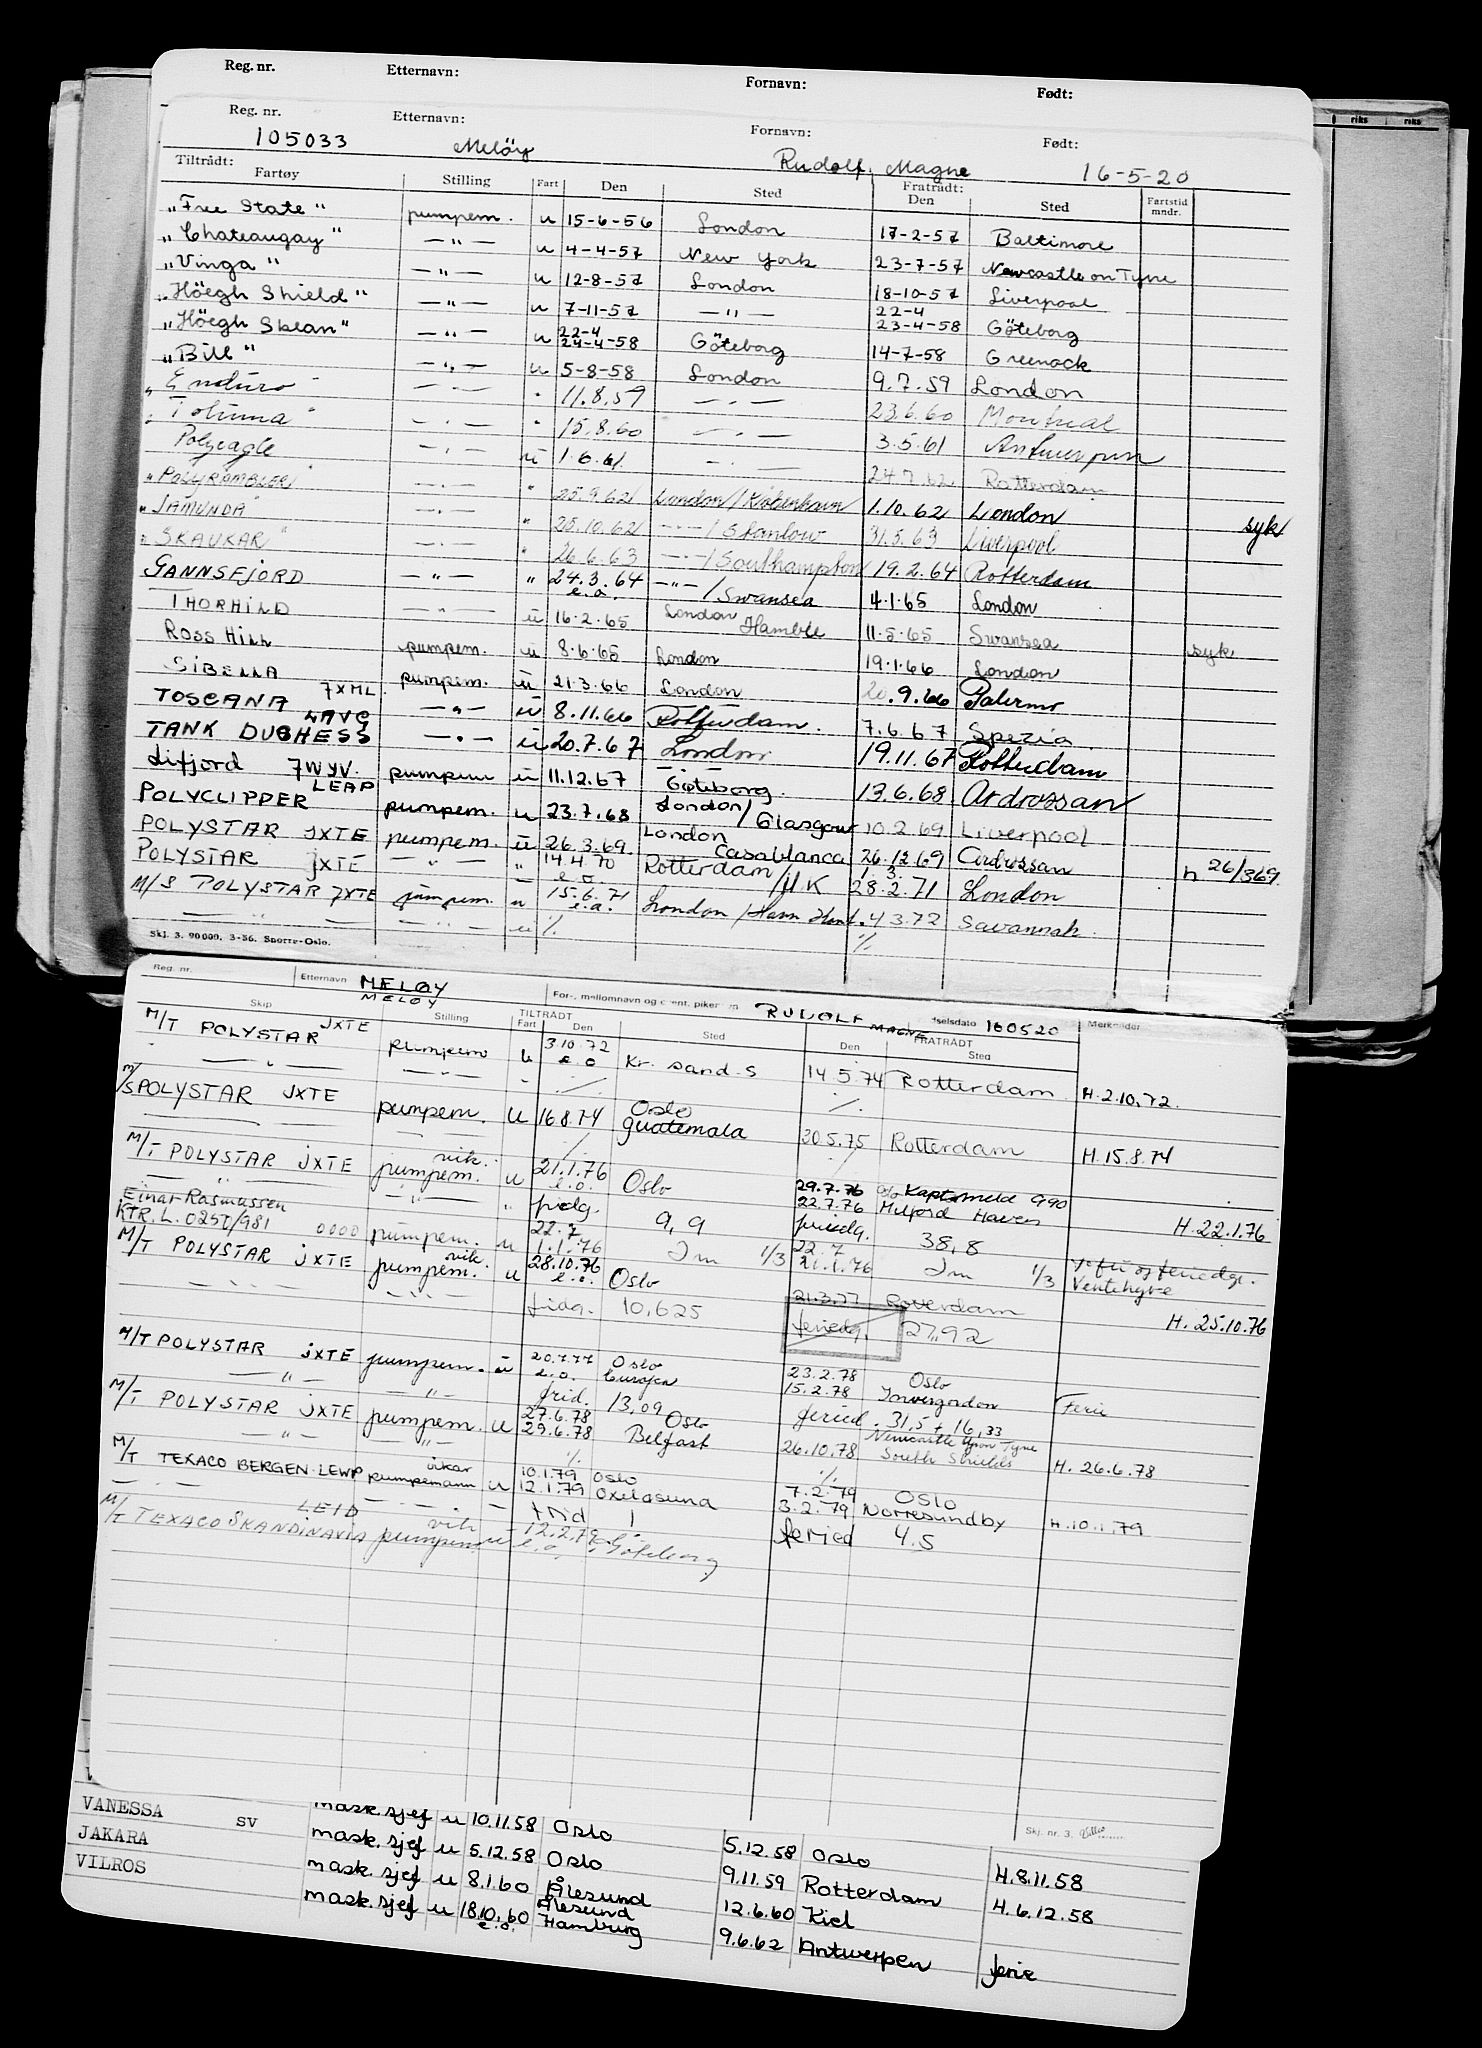 Reg. nr. Etternavn: Fornavn: Født:
Reg. nr. Etternavn: Fornavn: Født:
105033 Melöy Rudolf Magne 16-5-20
Tiltrådt: Fratrådt:
Fartøy Stilling Fart Den Sted Den Sted Fartstid mndr.
"Free State" pumpem. u 15-6-56 London 17-2-57 Baltimore
"Chateaugay" —"— u 4-4-57 New York 23-7-57 Newcastle on Tyne
"Vinga" —"— u 12-8-57 London 18-10-57 Liverpool
"Höegh Shield" —"— u 7-11-57 —"— 22-4 23-4-58 Göteborg
"Höegh Skean" —"— u 22-4 24-4-58 Göteborg 14-7-58 Greenock
"Bill" —"— u 5-8-58 London 9.7.59 London
"Enduro" —"— " 11.8.59 —"— 23.6.60 Montreal
"Toluma" —"— " 15.8.60 —"— 3.5.61 Antwerpen
Polyeagle —"— u 1.6.61 —"— 24.7.62 Rotterdam
"POLYRAMBLER" —"— " 25.9.62 London/København 1.10.62 London syk
"JAMUNDA" —"— " 25.10.62 —"—/Stanlow 31.5.63 Liverpool
"SKAUKAR" —"— " 26.6.63 —"—/Southampton 19.2.64 Rotterdam
GANNSFJORD —"— " 24.3.64 e.o. —"—/Swansea 4.1.65 London
THORHILD —"— u 16.2.65 London Hamble 11.5.65 Swansea syk
ROSS HILL pumpem. u 8.6.65 London 19.1.66 London
SIBELLA pumpem. u 21.3.66 London 20.9.66 Palermo
TOSCANA 7XML —"— u 8.11.66 Rotterdam. 7.6.67 Spezia.
TANK DUCHESS LAVG —"— u 20.7.67 London 19.11.67 Rotterdam
Lifjord 7WYV. pumpem u 11.12.67 Göteborg. 13.6.68 Ardrossan
POLYCLIPPER LEAP pumpem. u 23.7.68 London/Glasgow 10.2.69 Liverpool
POLYSTAR JXTE pumpem. u 26.3.69. London Casablanca 26.12.69 Ardrossan h 26/369
POLYSTAR JXTE —"— " 14.4.70 e.o Rotterdam /UK 1.3. 28.2.71 London
M/S POLYSTAR JXTE pumpem. u 15.6.71 e.o. London / 4.3.72 Savannah.
—"— —"— u ./. ./.
Skj. 3. 90 000. 3-56. Snorre-Oslo.
Reg. nr. Etternavn MELØY For-, mellomnavn og event. pikenavn RUDOLF MAGNE selsdato 160520 Merknader
MELØY
Skip Stilling TILTRÅDT Fart Den Sted FRATRÅDT Den Sted
M/T POLYSTAR JXTE pumpem u 3.10.72 e.o Kr. sand. S 14.5.74 Rotterdam H.2.10.72.
—"— —"— " ./. ./.
M/S POLYSTAR JXTE pumpem. u 16.8.74 Oslo Guatemala 30.5.75 Rotterdam H.15.8.74
M/T POLYSTAR JXTE vik. pumpem. u 21.1.76 e.o. Oslo 29.7.76 Oslo Kaptsmeld 990 H.22.1.76
—"— —"— fridg. 9,9 22.7.76 Milford Haven
Einar Rasmussen feriedg. 38,8
KTR.L.025T/981 0000 pumpem. u 22.7 1.1.76 Im 1/3 22.7 21.1.76 Im 1/3 Ventehyre
M/T POLYSTAR JXTE vik. pumpem. u 28.10.76 e.o. Oslo 21.3.77 Rotterdam H.25.10.76
—"— —"— fridg. 10,625 feriedg. 27,92
M/T POLYSTAR JXTE pumpem. u 20.7.77 e.o. Oslo Europa 23.2.78 Oslo Ferie
—"— —"— frid. 13,09 15.2.78 Invergordon
feried. 31,5 + 16,33
M/T POLYSTAR JXTE pumpem. u 27.6.78 29.6.78 Oslo Belfast 26.10.78 Newcastle Upon Tyne South Shields H.26.6.78
—"— —"— ./. ./.
M/T TEXACO BERGEN LEWP vikar pumpemann u 10.1.79 12.1.79 Oslo Oxeløsund 7.2.79 3.2.79 OSLO Nørresundby H.10.1.79
—"— —"— frid 1 feried 4.5
M/T TEXACO SKANDINAVIA LEID vik pumpem u 12.2.79 e.o. Göteborg
Skj. nr. 3.
VANESSA SV mask.sjef u 10.11.58 Oslo 5.12.58 Oslo H.8.11.58
JAKARA mask.sjef u 5.12.58 Oslo 9.11.59 Rotterdam H.6.12.58
VILROS mask.sjef u 8.1.60 Ålesund 12.6.60 Kiel
mask.sjef u 18.10.60 e.o. Ålesund Hamburg 9.6.62 Antwerpen ferie
riks riks